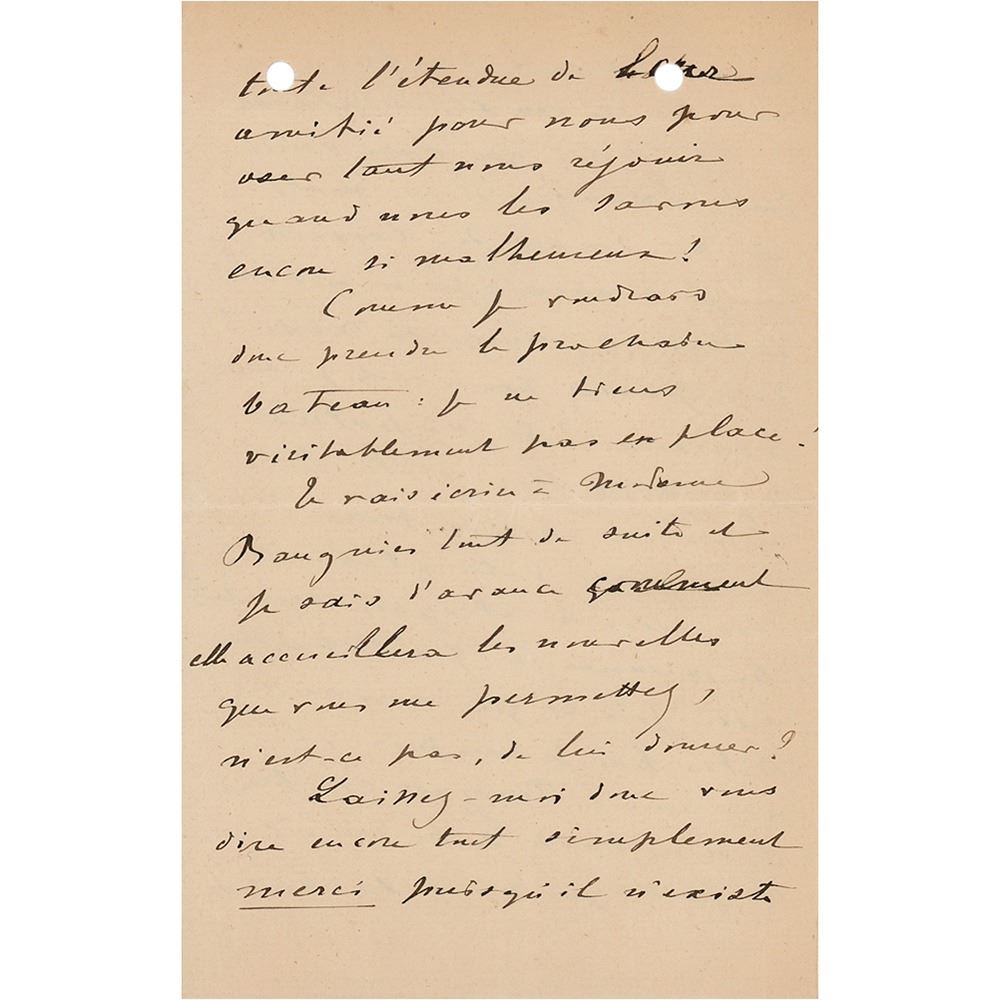 toute l'étendue de leur
amitié pour nous pour
oser tant nous réjouir
quand nous les savons
encore si malheureux!
Comme je voudrais
donc prendre le prochain
bateau : je ne tiens
véritablement pas en place!
Je vais écrire à Madame
Baugnies tout de suite et
je sais d'avance comment
elle accueillera les nouvelles
que vous me permettez,
n'est-ce pas, de lui donner?
Laissez-moi donc vous
dire encore tout simplement
merci puisqu'il n'existe